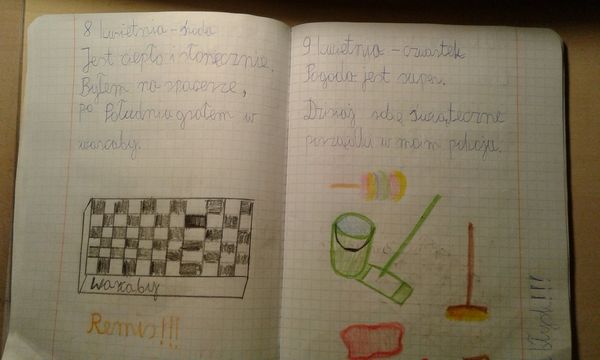 8 kwietnia - środa
Jest ciepło i słonecznie.
Byłem na spacerze,
po południu grałem w
warcaby.
warcaby
Remis!!!
9 kwietnia - czwartek
Pogoda jest super.
Dzisiaj robię świąteczne
porządki w moim pokoju.